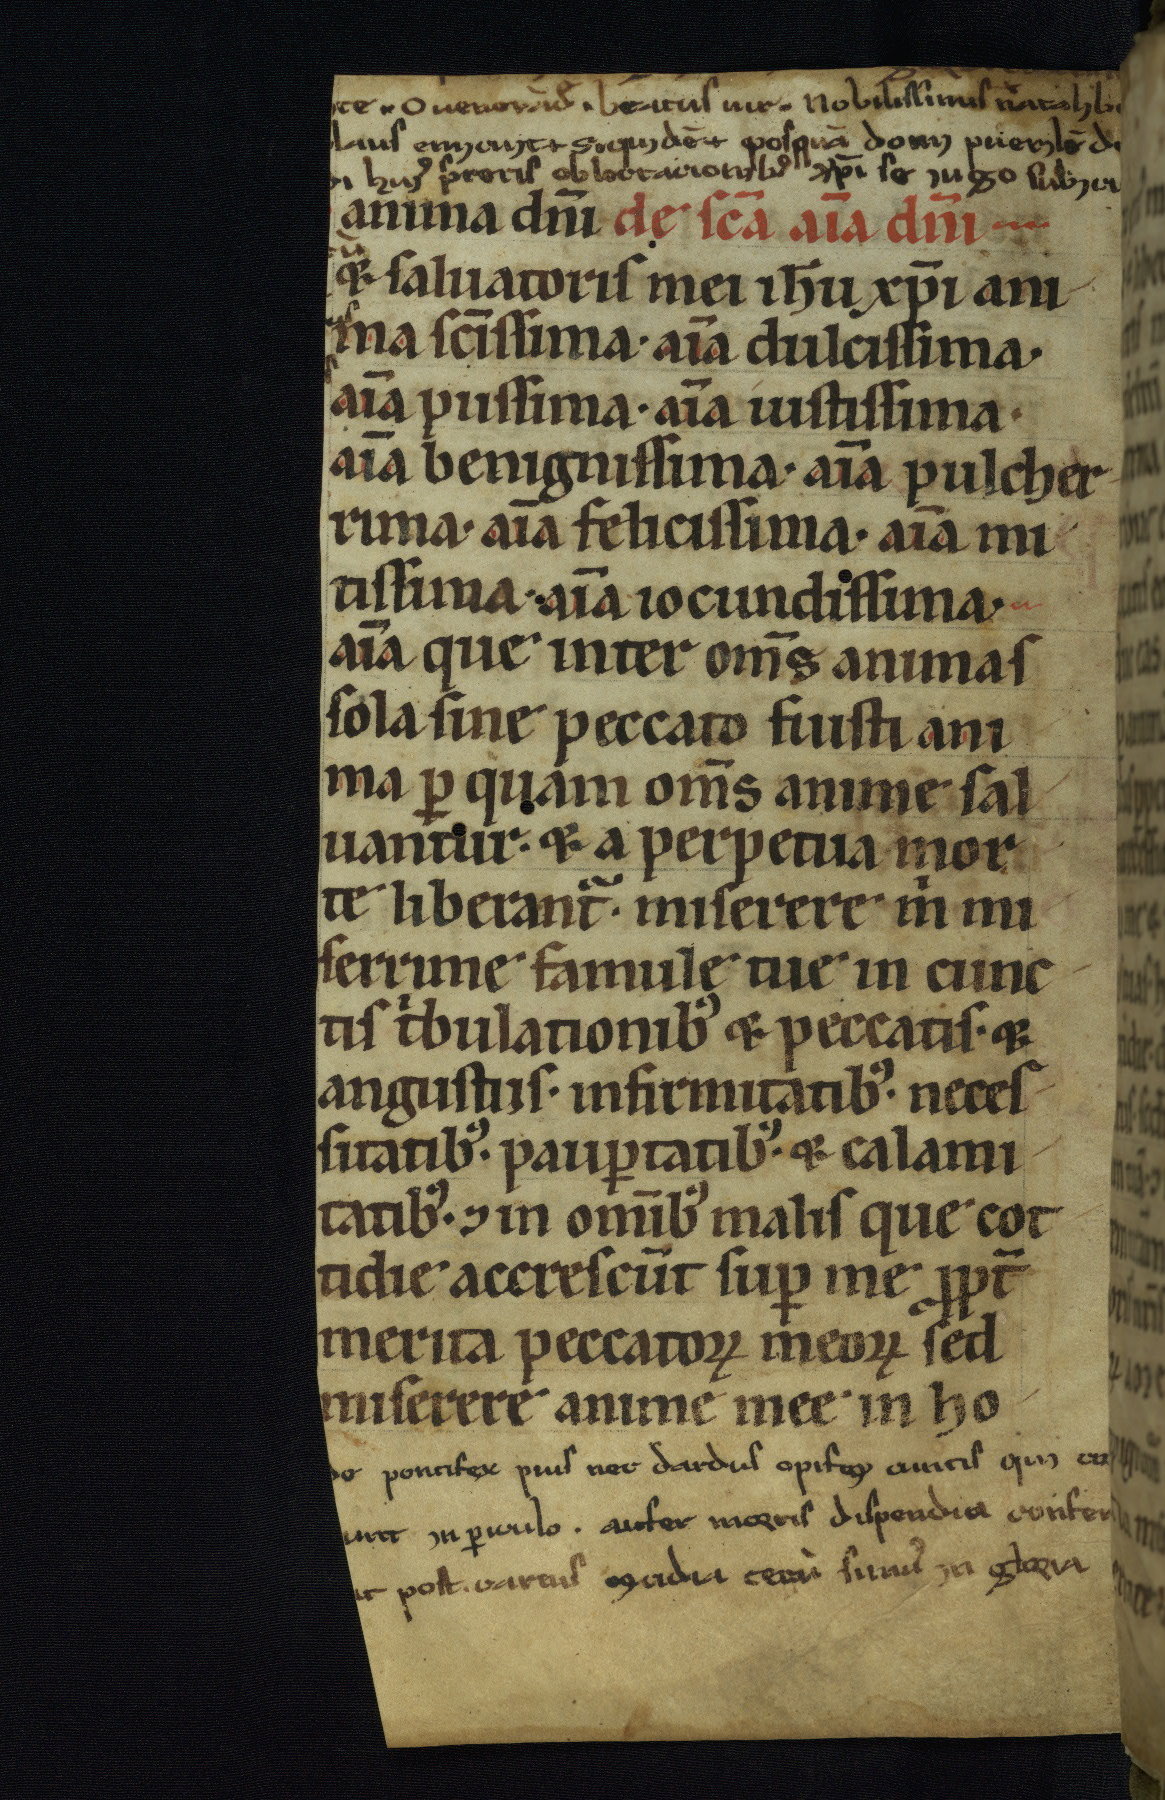 te. O venerãd. beatus uir. Nobilissimus
posquã
se iugo
anima dñi de sc̃a aĩa dñi
& saluatoris mei ih̃u xp̃i ani
ma sc̃issima· aĩa dulcissima·
aĩa piissima· aĩa iustissima·
aĩa benignissima· aĩa pulcher
rima· aĩa felicissima· aĩa mi
tissima· aĩa iocundissima·
aĩa que inter om̃s animas
sola sine peccato fuisti ani
ma ꝑ quam om̃s anime sal
uantur· & a perpetua mor
te liberant᷑· miserere m̍ mi
serrime famule tue in cunc
tis t̍bulationibꝰ & peccatis· &
angustiis· infirmitatibꝰ· neces
sitatibꝰ· pauꝑtatibꝰ· & calami
tatibꝰ· ⁊ in om̃ibꝰ malis que cot
tidie accrescũt suꝑ me ꝓpt̃
merita peccatoꝝ meoꝝ sed
miserere anime mee in ho
pontifex pius nec dardus opifex auitis
in ꝑiculo. aufer dispendia
post. sumꝰ in gloria